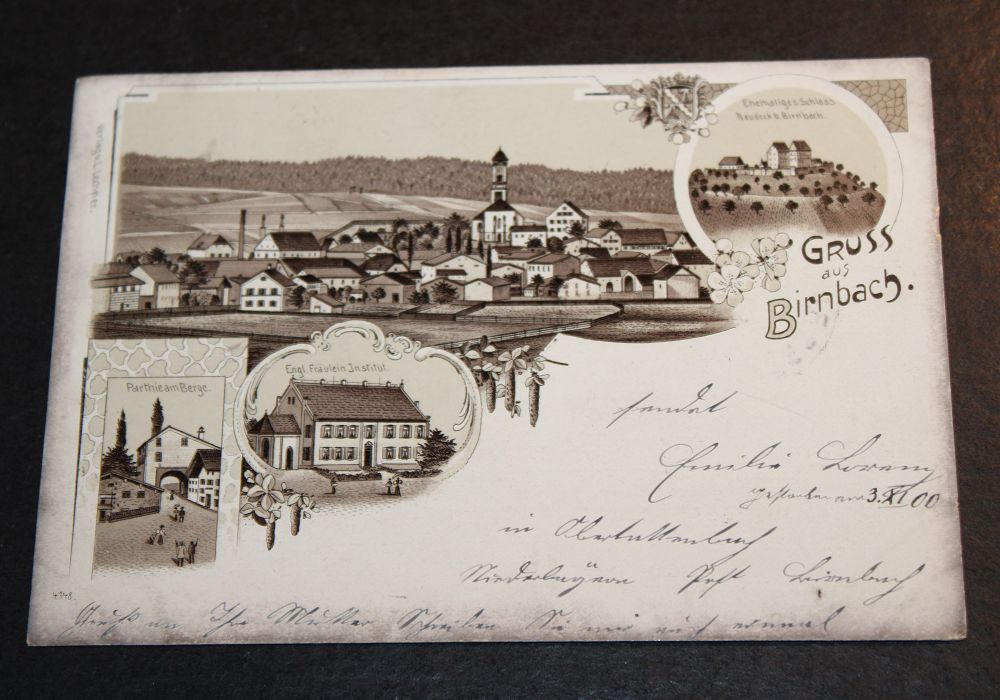 Ehemaliges Schloss
Neudeck b. Birnbach.
GRUSS
aus
Birnbach.
Engl. Fräulein Institut.
Parthie am Berge.
sendet
Emilie Lorenz
gestorben am 3. XI 00
in Obertattenbach
Niederbayern Post Birnbach
4748.
Gruß an Ihre Mutter Schreiben Sie mir auch einmal